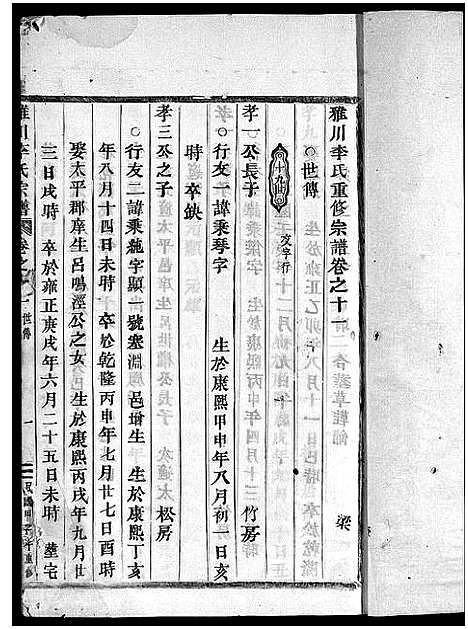 雅川李氏重修宗譜卷之十一
梁
○世傳
十九世
友字行
孝一公長子
竹房
○行友一諱乘琴字 生於康熙甲申年八月初一日亥
時 卒缺
孝三公之子
松房
○行友二諱乘 字顯一號塞淵 邑增生 生於康熙丁亥
年八月十四日未時 卒於乾隆丙申年七月廿七日酉時
娶太平郡庠生呂鳴 公之女 生於康熙丙戌年九月廿
三日戌時 卒於雍正庚戌年六月二十五日未時 墓宅
雅川李氏宗譜 卷之十一 世傳 一